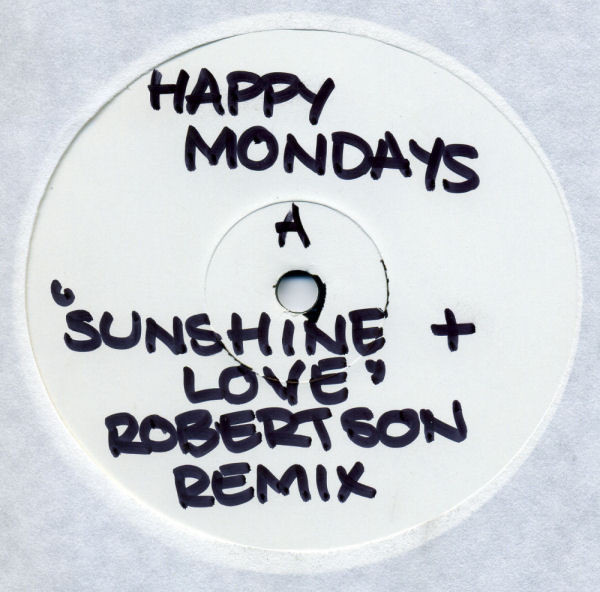 HAPPY
MONDAYS
A
"SUNSHINE +
LOVE"
ROBERTSON
REMIX